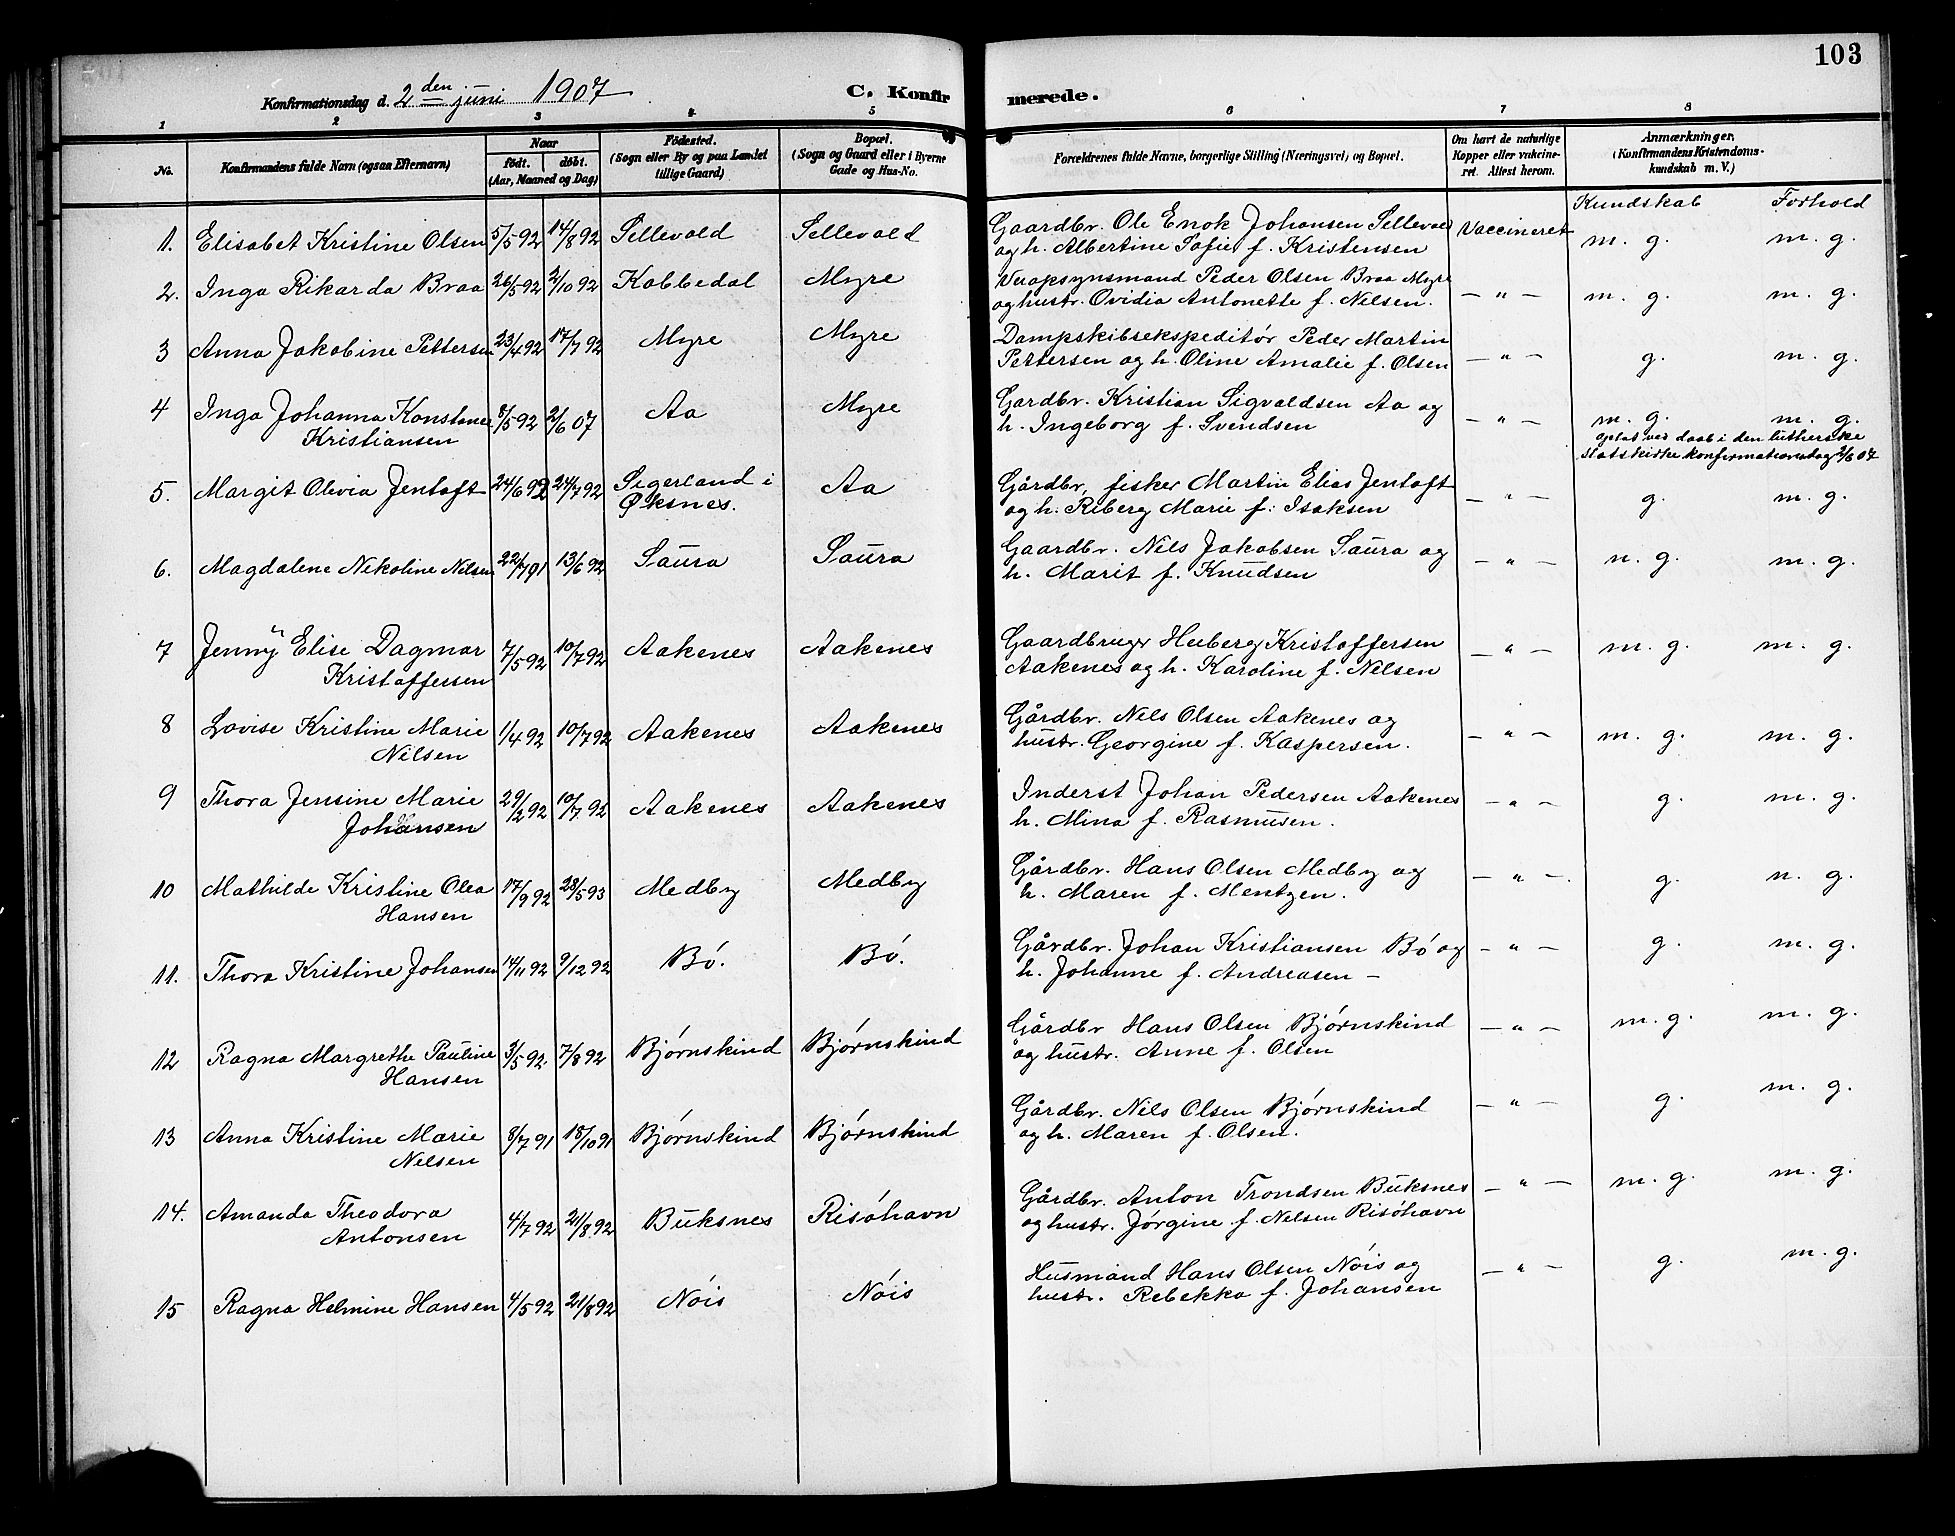 103
Konfirmationsdag d. 2den juni 1907 C. Konfirmerede.
1 2 3 4 5 6 7 8
No.
Konfirmandens fulde Navn (ogsaa Efternavn)
Naar
født. døbt.
(Aar, Maaned og Dag)
Fødested.
(Sogn eller By og paa Landet
tillige Gaard)
Bopæl.
(Sogn og Gaard eller i Byerne
Gade og Hus-No.
Forældrenes fulde Navne, borgerlige Stilling (Næringsvei) og Bopæl.
Om havt de naturlige
Kopper eller vakcine-
ret. Attest herom.
Anmærkninger.
(Konfirmandens Kristendoms-
kundskab m. V.)
Kundskab Forhold
1. Elisabet Kristine Olsen 5/5 92 14/8 92 Sellevold Sellevold Gaardbr. Ole Enok Johansen Sellevold Vaccineret m. g. m. g.
og h. Albertine Sofie f. Kristensen
2. Inga Rikarda Braa 26/5 92 2/10 92 Kobbedal Myre Veiopsynsmand Peder Olsen Braa Myre — " — m. g. m. g.
og hustr. Ovidia Antonette f. Nilsen.
3 Anna Jakobine Pettersen 23/4 92 17/7 92 Myre Myre Dampskibsekspeditør Peder Martin — " — g. m. g.
Pettersen og h. Oline Amalie f. Olsen
4 Inga Johanna Konstance 8/5 92 2/6 07 Aa Myre Gardbr. Kristian Sigvaldsen Aa og — " — m. g. m. g.
Kristiansen h. Ingeborg f. Svendsen
optat ved daab i den lutherske
statskirke konfirmationsdag 2/6 07
5. Margit Olivia Jentoft 24/6 92 24/7 92 Sigerland i Aa Gårdbr, fisker Martin Elias Jentoft — " — g. m. g.
Øksnes. og h. Riberg Marie f. Isaksen
6. Magdalene Nikoline Nilsen 22/7 91 13/6 92 Saura Saura Gaardbr. Nils Jakobsen Saura og — " — m. g. m. g.
h. Marit f. Knudsen
7 Jenny Elise Dagmar 7/5 92 10/7 92 Aakenes Aakenes Gaardbruger Heiberg Kristoffersen — " — m. g. m. g.
Kristoffersen Aakenes og h. Karoline f. Nilsen
8 Lovise Kristine Marie 1/4 92 10/7 92 Aakenes Aakenes Gårdbr. Nils Olsen Aakenes og — " — m. g. m. g.
Nilsen hustr. Georgine f. Kaspersen.
9 Thora Jensine Marie 29/2 92 10/7 92 Aakenes Aakenes Inderst Johan Pedersen Aakenes — " — g. m. g.
Johansen h. Mina f. Rasmusen.
10 Mathilde Kristine Olea 17/9 92 28/5 93 Medby Medby Gårdbr. Hans Olsen Medby og — " —. g. m. g.
Hansen h. Maren f. Mentzen.
11. Thora Kristine Johansen 14/11 92 9/12 92 Bö. Bö. Gårdbr. Johan Kristiansen Bö og — " — g. m. g.
h. Johanne f. Andreasen —
12 Ragna Margrethe Pauline 3/5 92 7/8 92 Björnskind Björnskind Gårdbr Hans Olsen Björnskind — " — m. g. m. g.
Hansen og hustr. Anne f. Olsen
13 Anna Kristine Marie 8/7 91 18/10 91 Björnskind Björnskind Gårdbr. Nils Olsen Björnskind — " — g. m. g.
Nilsen og h. Maren f. Olsen.
14. Amanda Theodora 4/7 92 21/8 92 Buksnes Risöhavn Gårdbr. Anton Trondsen Buksnes — " — m. g. m. g.
Antonsen og hustr. Jörgine f. Nilsen Risöhavn
15 Ragna Helmine Hansen 4/5 92 21/8 92 Nöis Nöis Husmand Hans Olsen Nöis og — " — g. m. g.
hustr. Rebekka f. Johansen